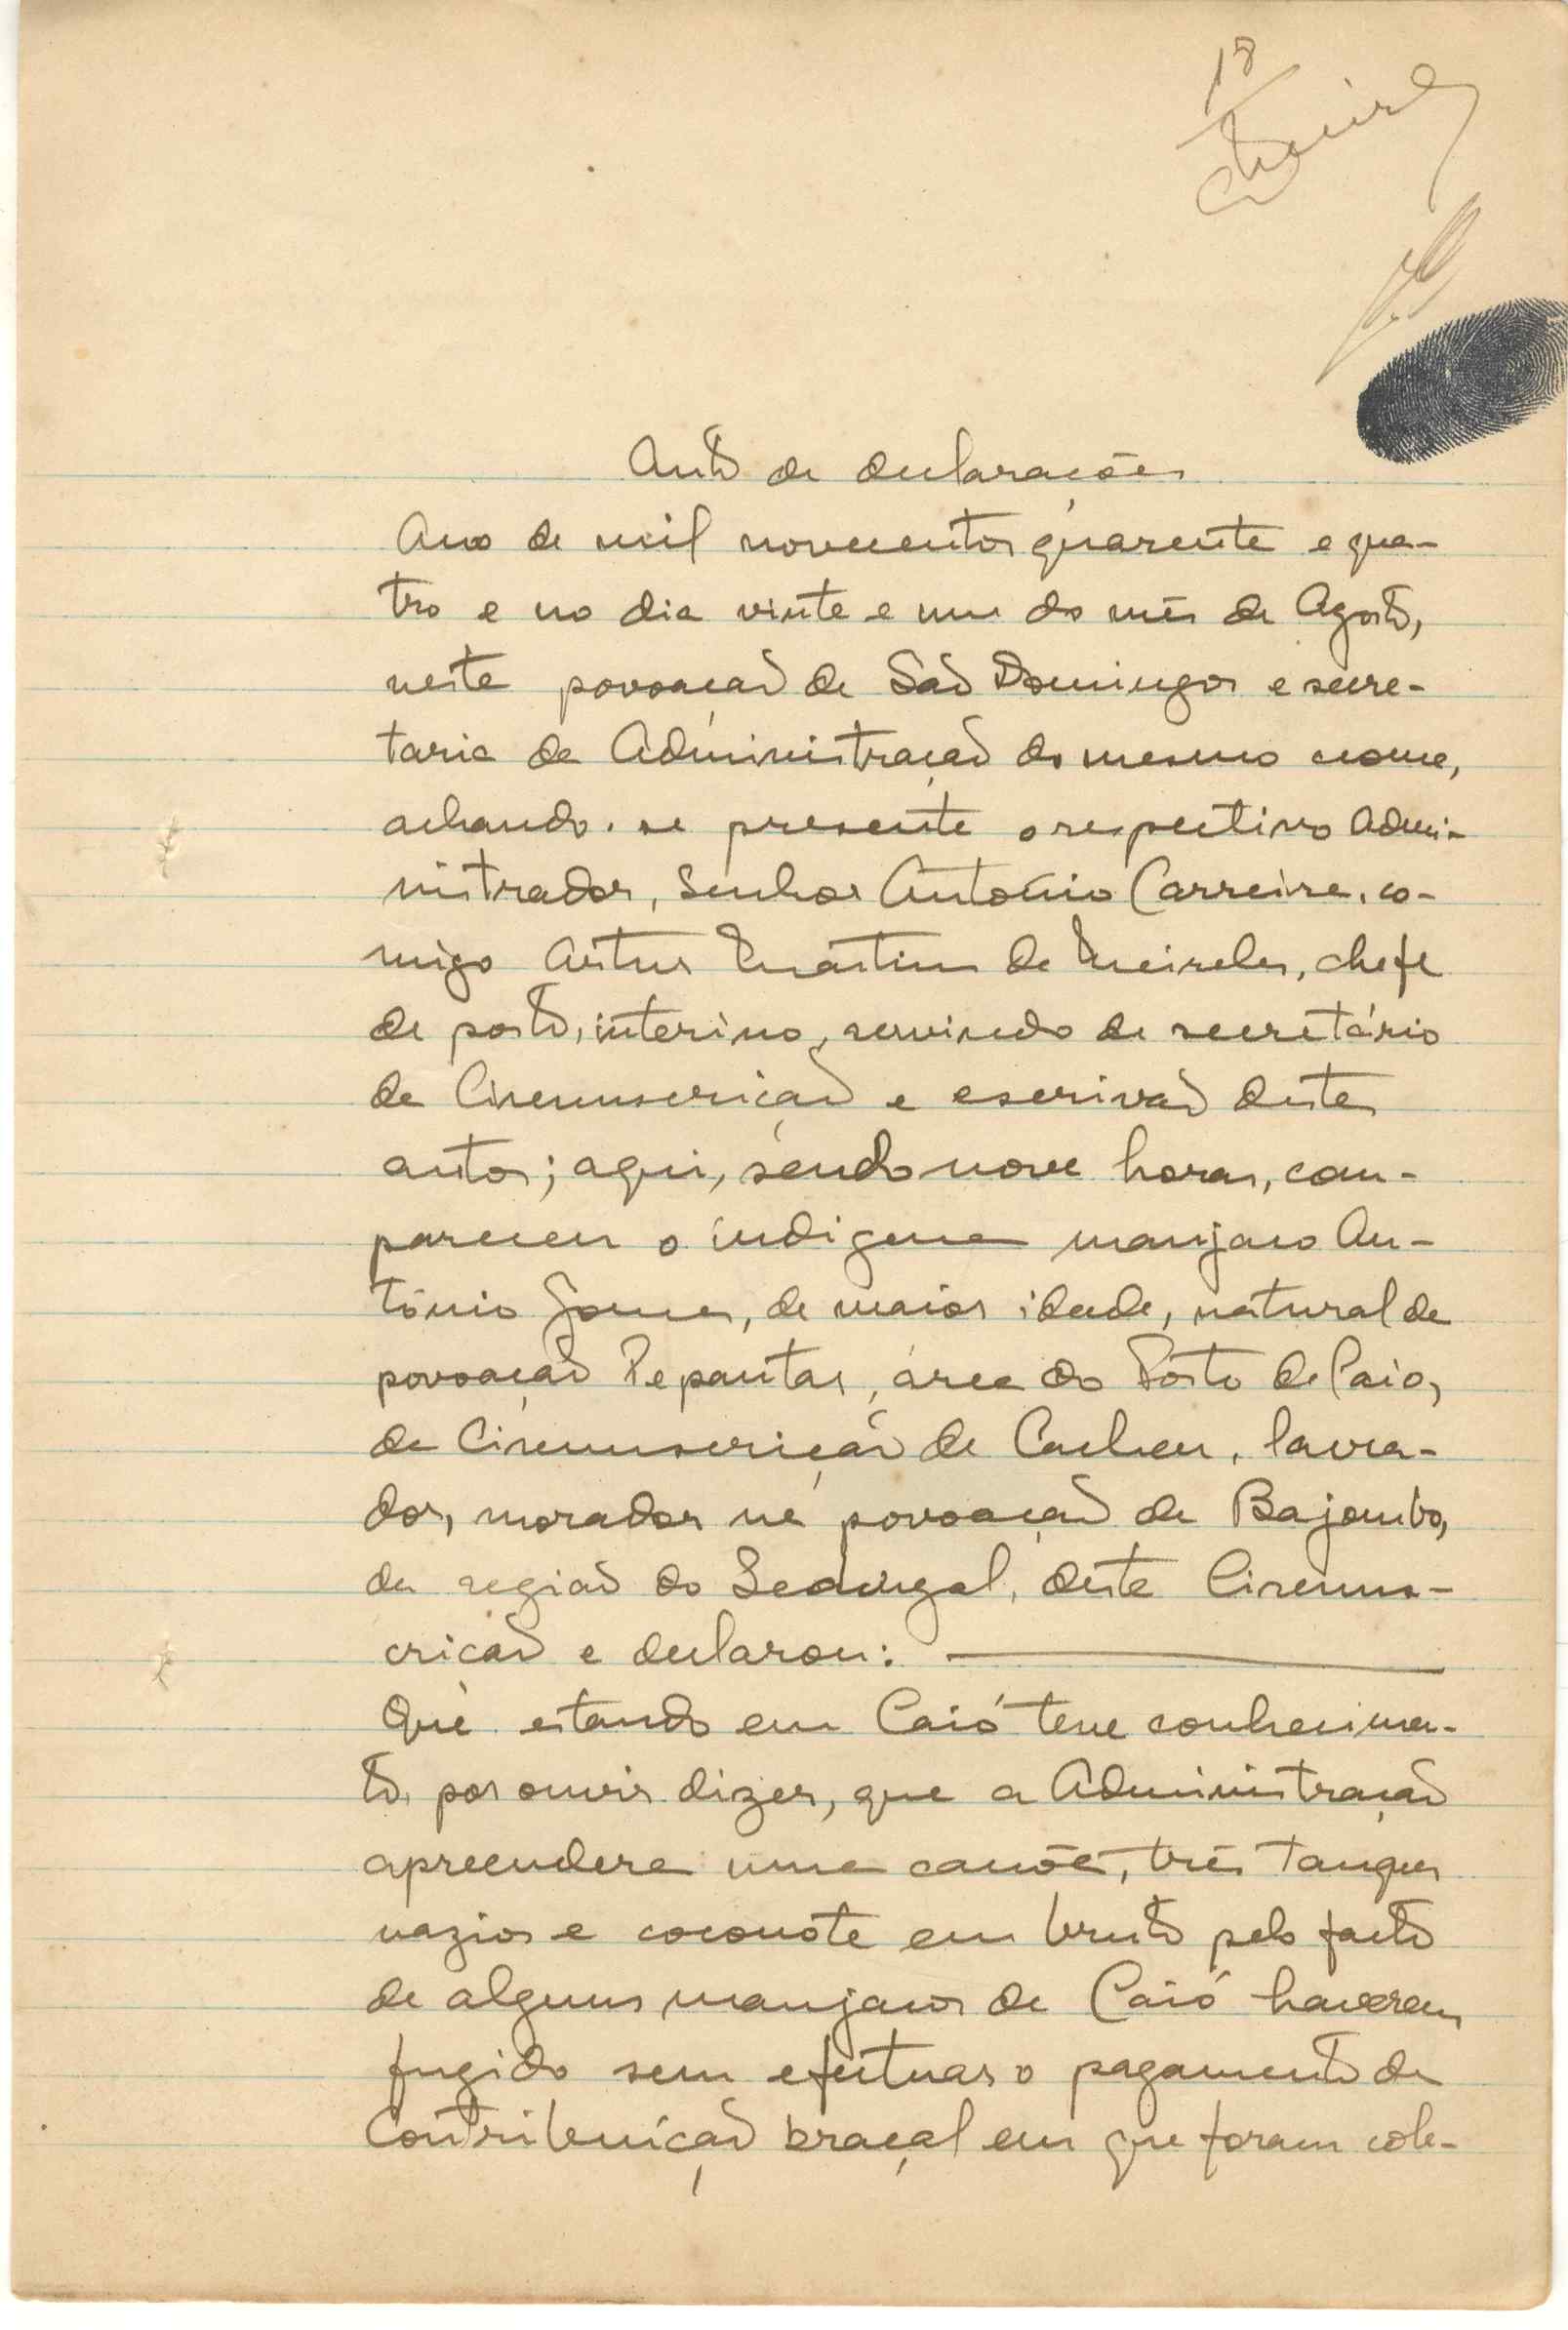 18
Meireles
Auto de declarações
Ano de mil novecentos quarenta e qua-
tro e no dia vinte e um do mês de Agosto,
nesta povoação de São Domingos e secre-
taria da Administração do mesmo nome,
achando-se presente o respectivo Admi-
nistrador, Senhor António Carreira, co-
migo Artur Martins de Meireles, chefe
de posto, interino, servindo de secretário
da Circunscrição e escrivão destes
autos; aqui, sendo nove horas, com-
pareceu o indígena manjaco An-
tónio Gomes, de maior idade, natural da
povoação Pepantar, área do Pôsto de Caio,
da Circunscrição de Cacheu, lavra-
dor, morador na povoação de Bajombo,
da região do Sedengal, desta Circuns-
crição e declarou:
Que estando em Caió teve conhecimen-
to, por ouvir dizer, que a Administração
apreendera uma canôa, três tanques
vazios e coconote em bruto pelo facto
de alguns manjacos de Caió haverem
fugido sem efectuar o pagamento da
Contribuição braçal em que foram cole-